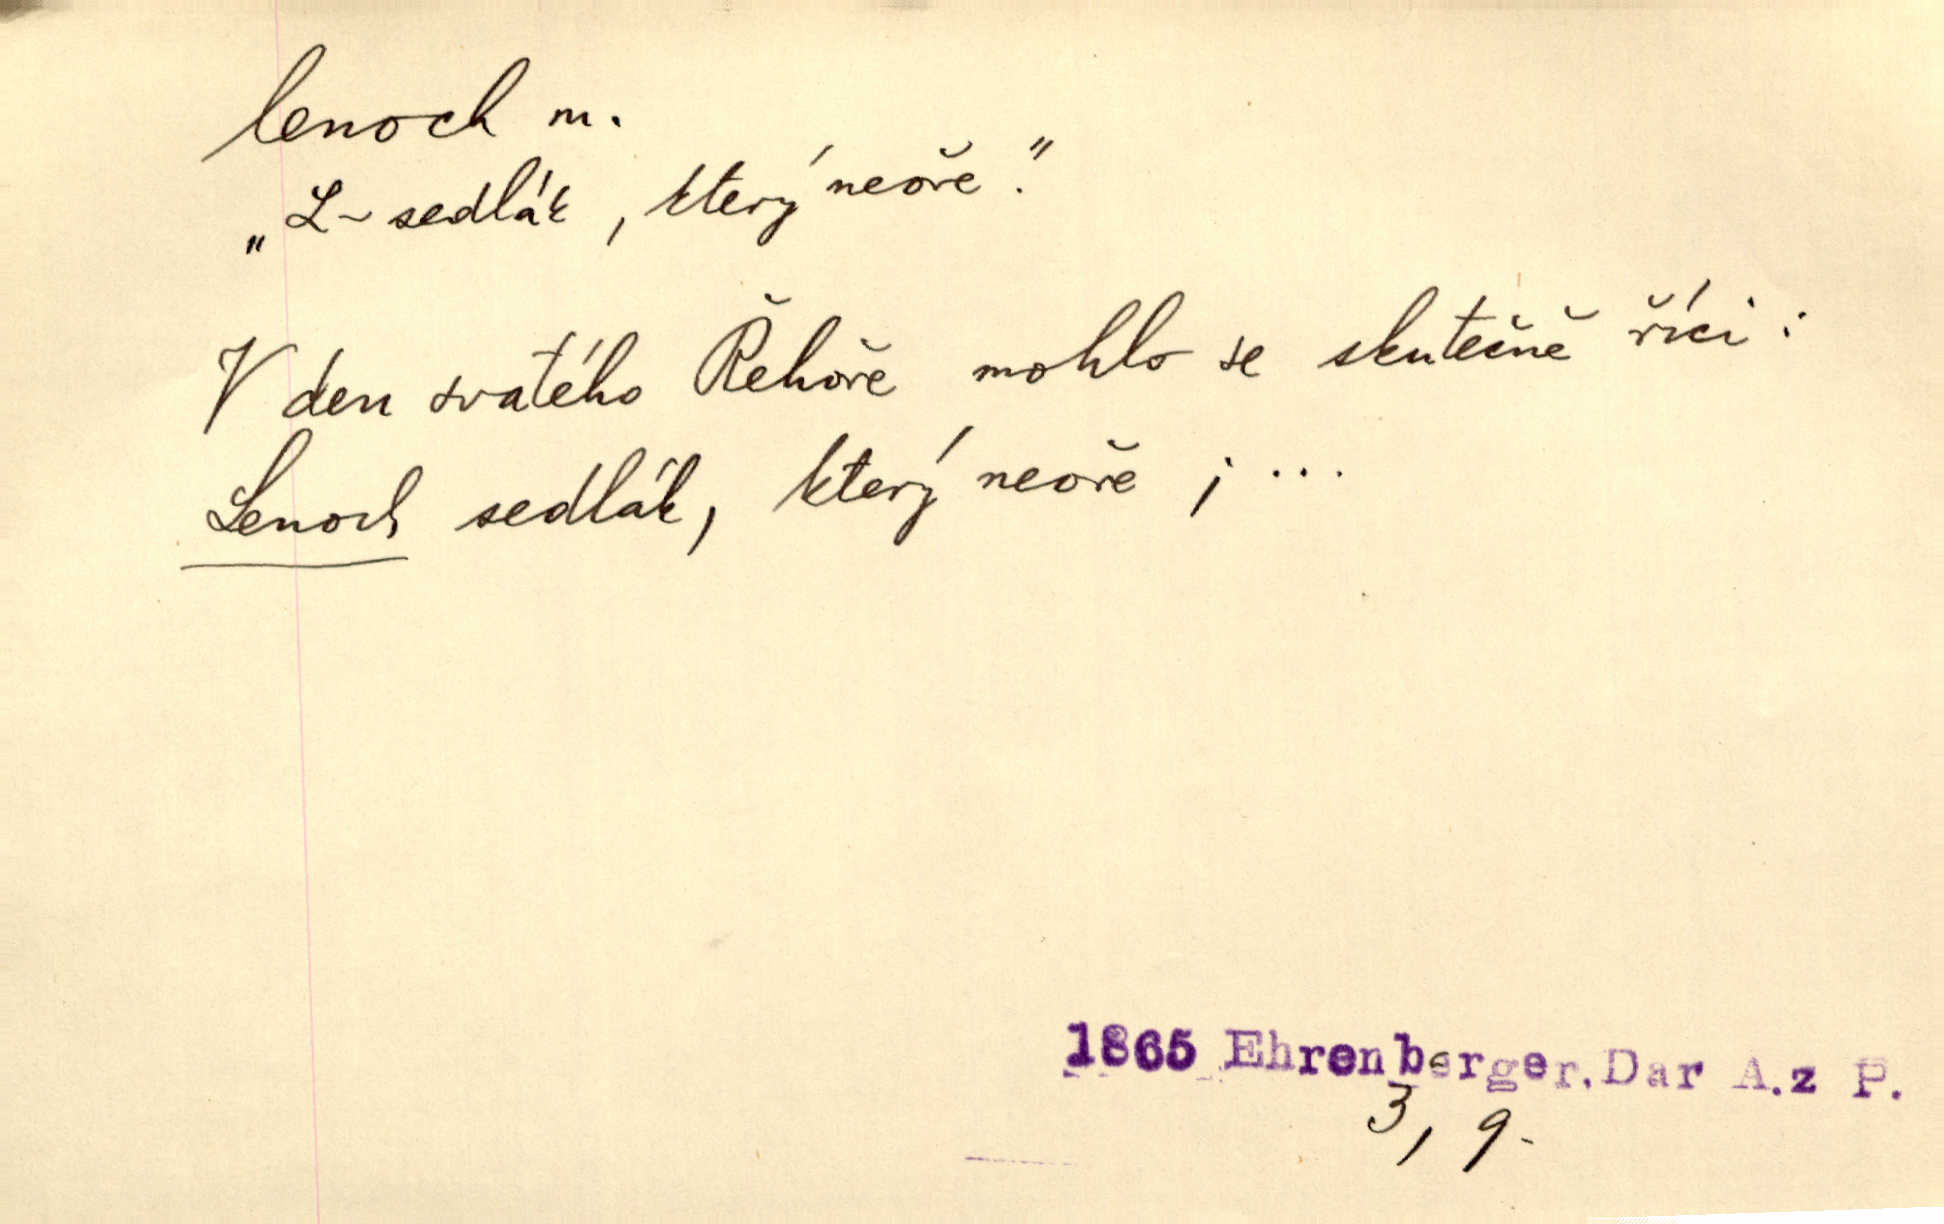 lenoch m.
„L~ sedlák, který neoře."
V den svatého Řehoře mohlo se skutečně říci:
Lenoch sedlák, který neoře; ...
1865 Ehrenberger. Dar A. z P.
3, 9.